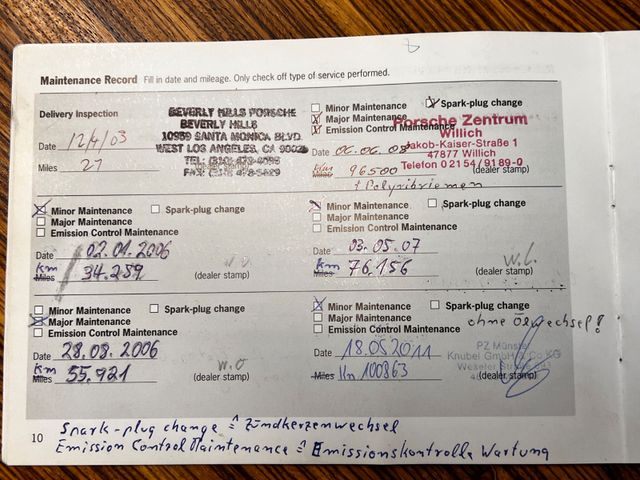 Maintenance Record Fill in date and mileage. Only check off type of service performed.
Delivery Inspection
Date 12/4/03
Miles 27
BEVERLY HILLS PORSCHE
BEVERLY HILLS
10959 SANTA MONICA BLVD.
WEST LOS ANGELES, CA 90025
TEL:
FAX:
(dealer stamp)
Minor Maintenance Spark-plug change
Major Maintenance
Emission Control Maintenance
Porsche Zentrum
Willich
Jakob-Kaiser-Straße 1
47877 Willich
Telefon 02154/9189-0
Date 06.06.08
km 96500 (dealer stamp)
+ Polyribriemen
Minor Maintenance Spark-plug change
Major Maintenance
Emission Control Maintenance
Date 02.01.2006
km
Miles 34.259 (dealer stamp)
Minor Maintenance Spark-plug change
Major Maintenance
Emission Control Maintenance
Date 03.05.07
km
Miles 76.156 (dealer stamp)
Minor Maintenance Spark-plug change
Major Maintenance
Emission Control Maintenance
Date 28.08.2006
km
Miles 55.921 (dealer stamp)
Minor Maintenance Spark-plug change
Major Maintenance
Emission Control Maintenance
ohne Ölwechsel!
Date 18.05.2011
Miles km 100863 (dealer stamp)
PZ Münster
Knubel GmbH & Co KG
Weseler
Spark-plug change ≙ Zündkerzenwechsel
Emission Control Maintenance ≙ Emissionskontrolle Wartung
10